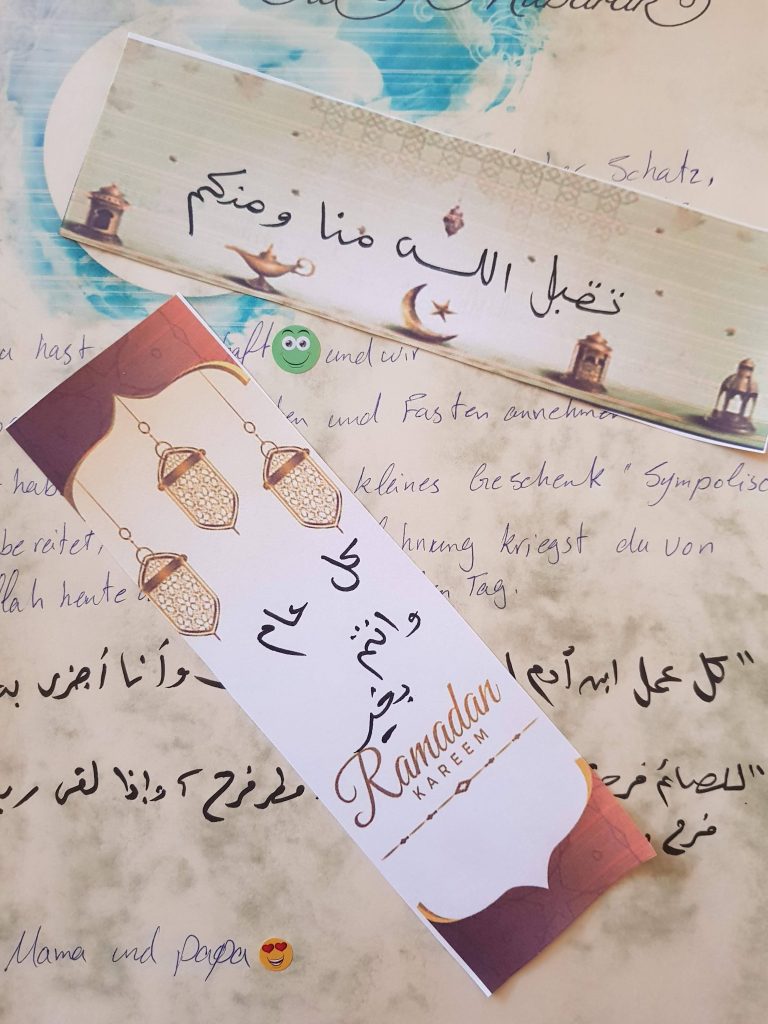 Mubarak
Schatz,
تقبل الله منا ومنكم
hast
und wir
und Fasten annehmen
kleines Geschenk "Sympolisc
bereitet,
kriegst du von
llah heute
Tag.
كل
عام
وانتم
بخير
Ramadan
KAREEM
"كل عمل ابن آدم
وأنا أجزى به
"للصائم فرح
فطر فرح، وإذا لقى رب
فرح
Mama und papa